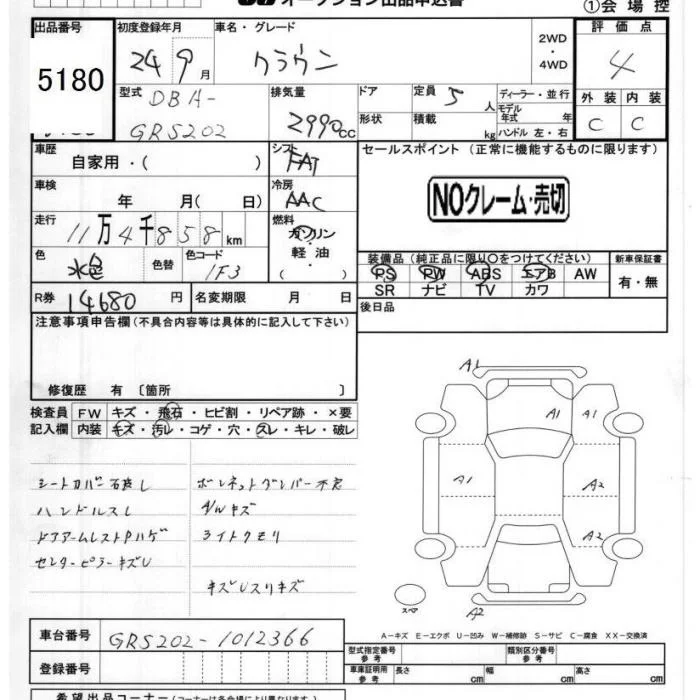 オークション出品申込書
①会場控
出品番号 初度登録年月 車名・グレード 評価点
5180 24年9月 クラウン 2WD・4WD 4
型式 DBA-GRS202 排気量 2990cc
ドア 定員 5人 ディーラー・並行
形状 積載 kg モデル年式 年 ハンドル 左・右
外装 内装
C C
車歴 自家用・( ) シフト FAT
セールスポイント (正常に機能するものに限ります)
車検 年 月( 日) 冷房 AAC
NOクレーム・売切
走行 11万4千858km 燃料 ガソリン・軽油・( )
色 水色 色替 色コード 1F3
装備品(純正品に限り○をつけてください) 新車保証書
PS PW ABS エアB AW 有・無
SR ナビ TV カワ
R券 14680円 名変期限 月 日
後日品
注意事項申告欄(不具合内容等は具体的に記入して下さい)
修復歴 有 〔箇所 〕
検査員 FW キズ・飛石・ヒビ割・リペア跡・×要
記入欄 内装 キズ・汚レ・コゲ・穴・スレ・キレ・破レ
A1
A1 A1
A1 A2
A2
A2
シートカバー
ハンドルスレ
ドアアームレストPハゲ
センターピラーキズU
ボンネット
A/Wキズ
ライトクモリ
キズUスリキズ
スペア
A―キズ E―エクボ U―凹み W―補修跡 S―サビ C―腐食 XX―交換済
車台番号 GRS202-1012366
型式指定番号 参考 類別区分番号 参考
登録番号
車庫証明用 参考 長さ cm 幅 cm 高さ cm
希望出品コーナー(コーナーは各会場により異なります)